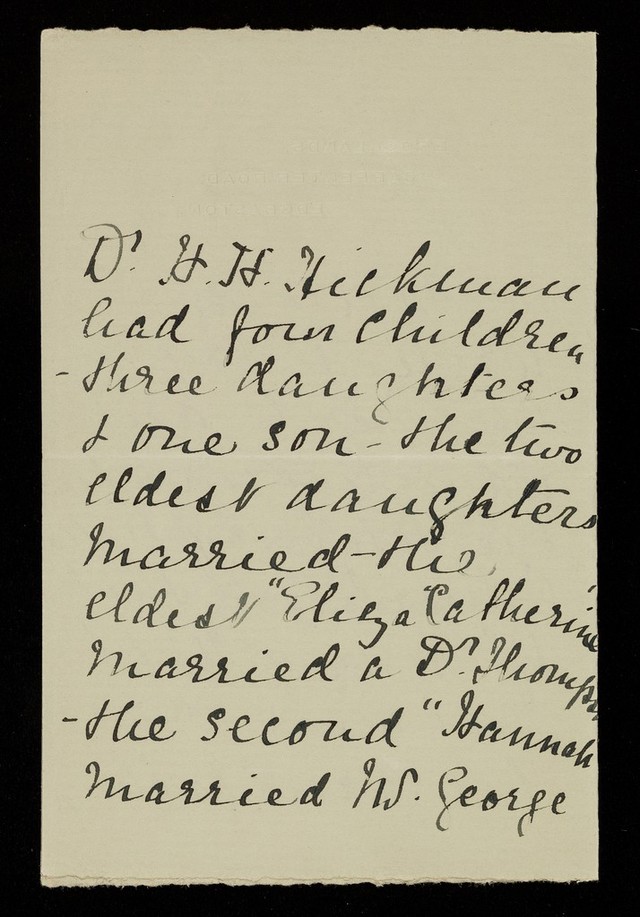 Dr. H. H. Hickman
had four children
- three daughters
& one son - the two
eldest daughters
married - the
eldest "Eliza Catherine"
married a Dr. Thompson
- the second "Hannah
married W. George